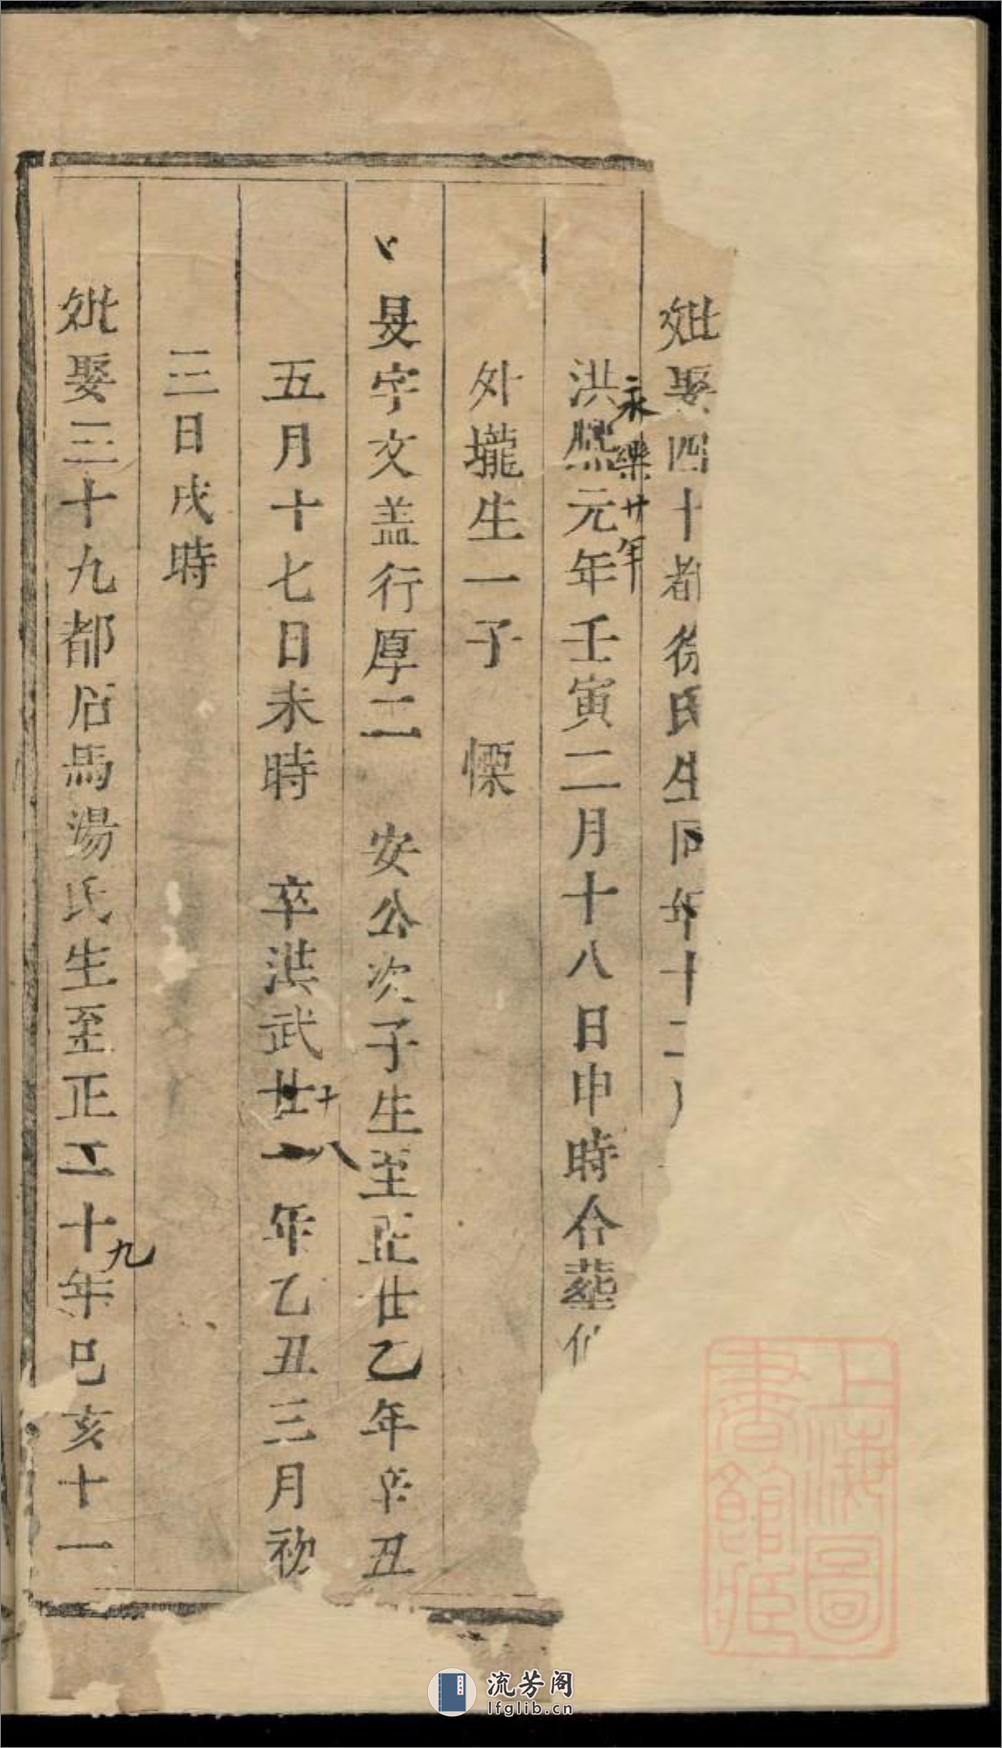 妣娶四十都徐氏生同年十二月
洪熙元年壬寅二月十八日申時合葬
永樂廿年
外壠生一子 慄
旻字文盖行厚二 安公次子生至正廿乙年辛丑
五月十七日未時 卒洪武廿一年乙丑三月初
十八
三日戌時
妣娶三十九都石馬湯氏生至正二十年巳亥十一
九
上海圖書館藏
流芳阁
lfglib.cn